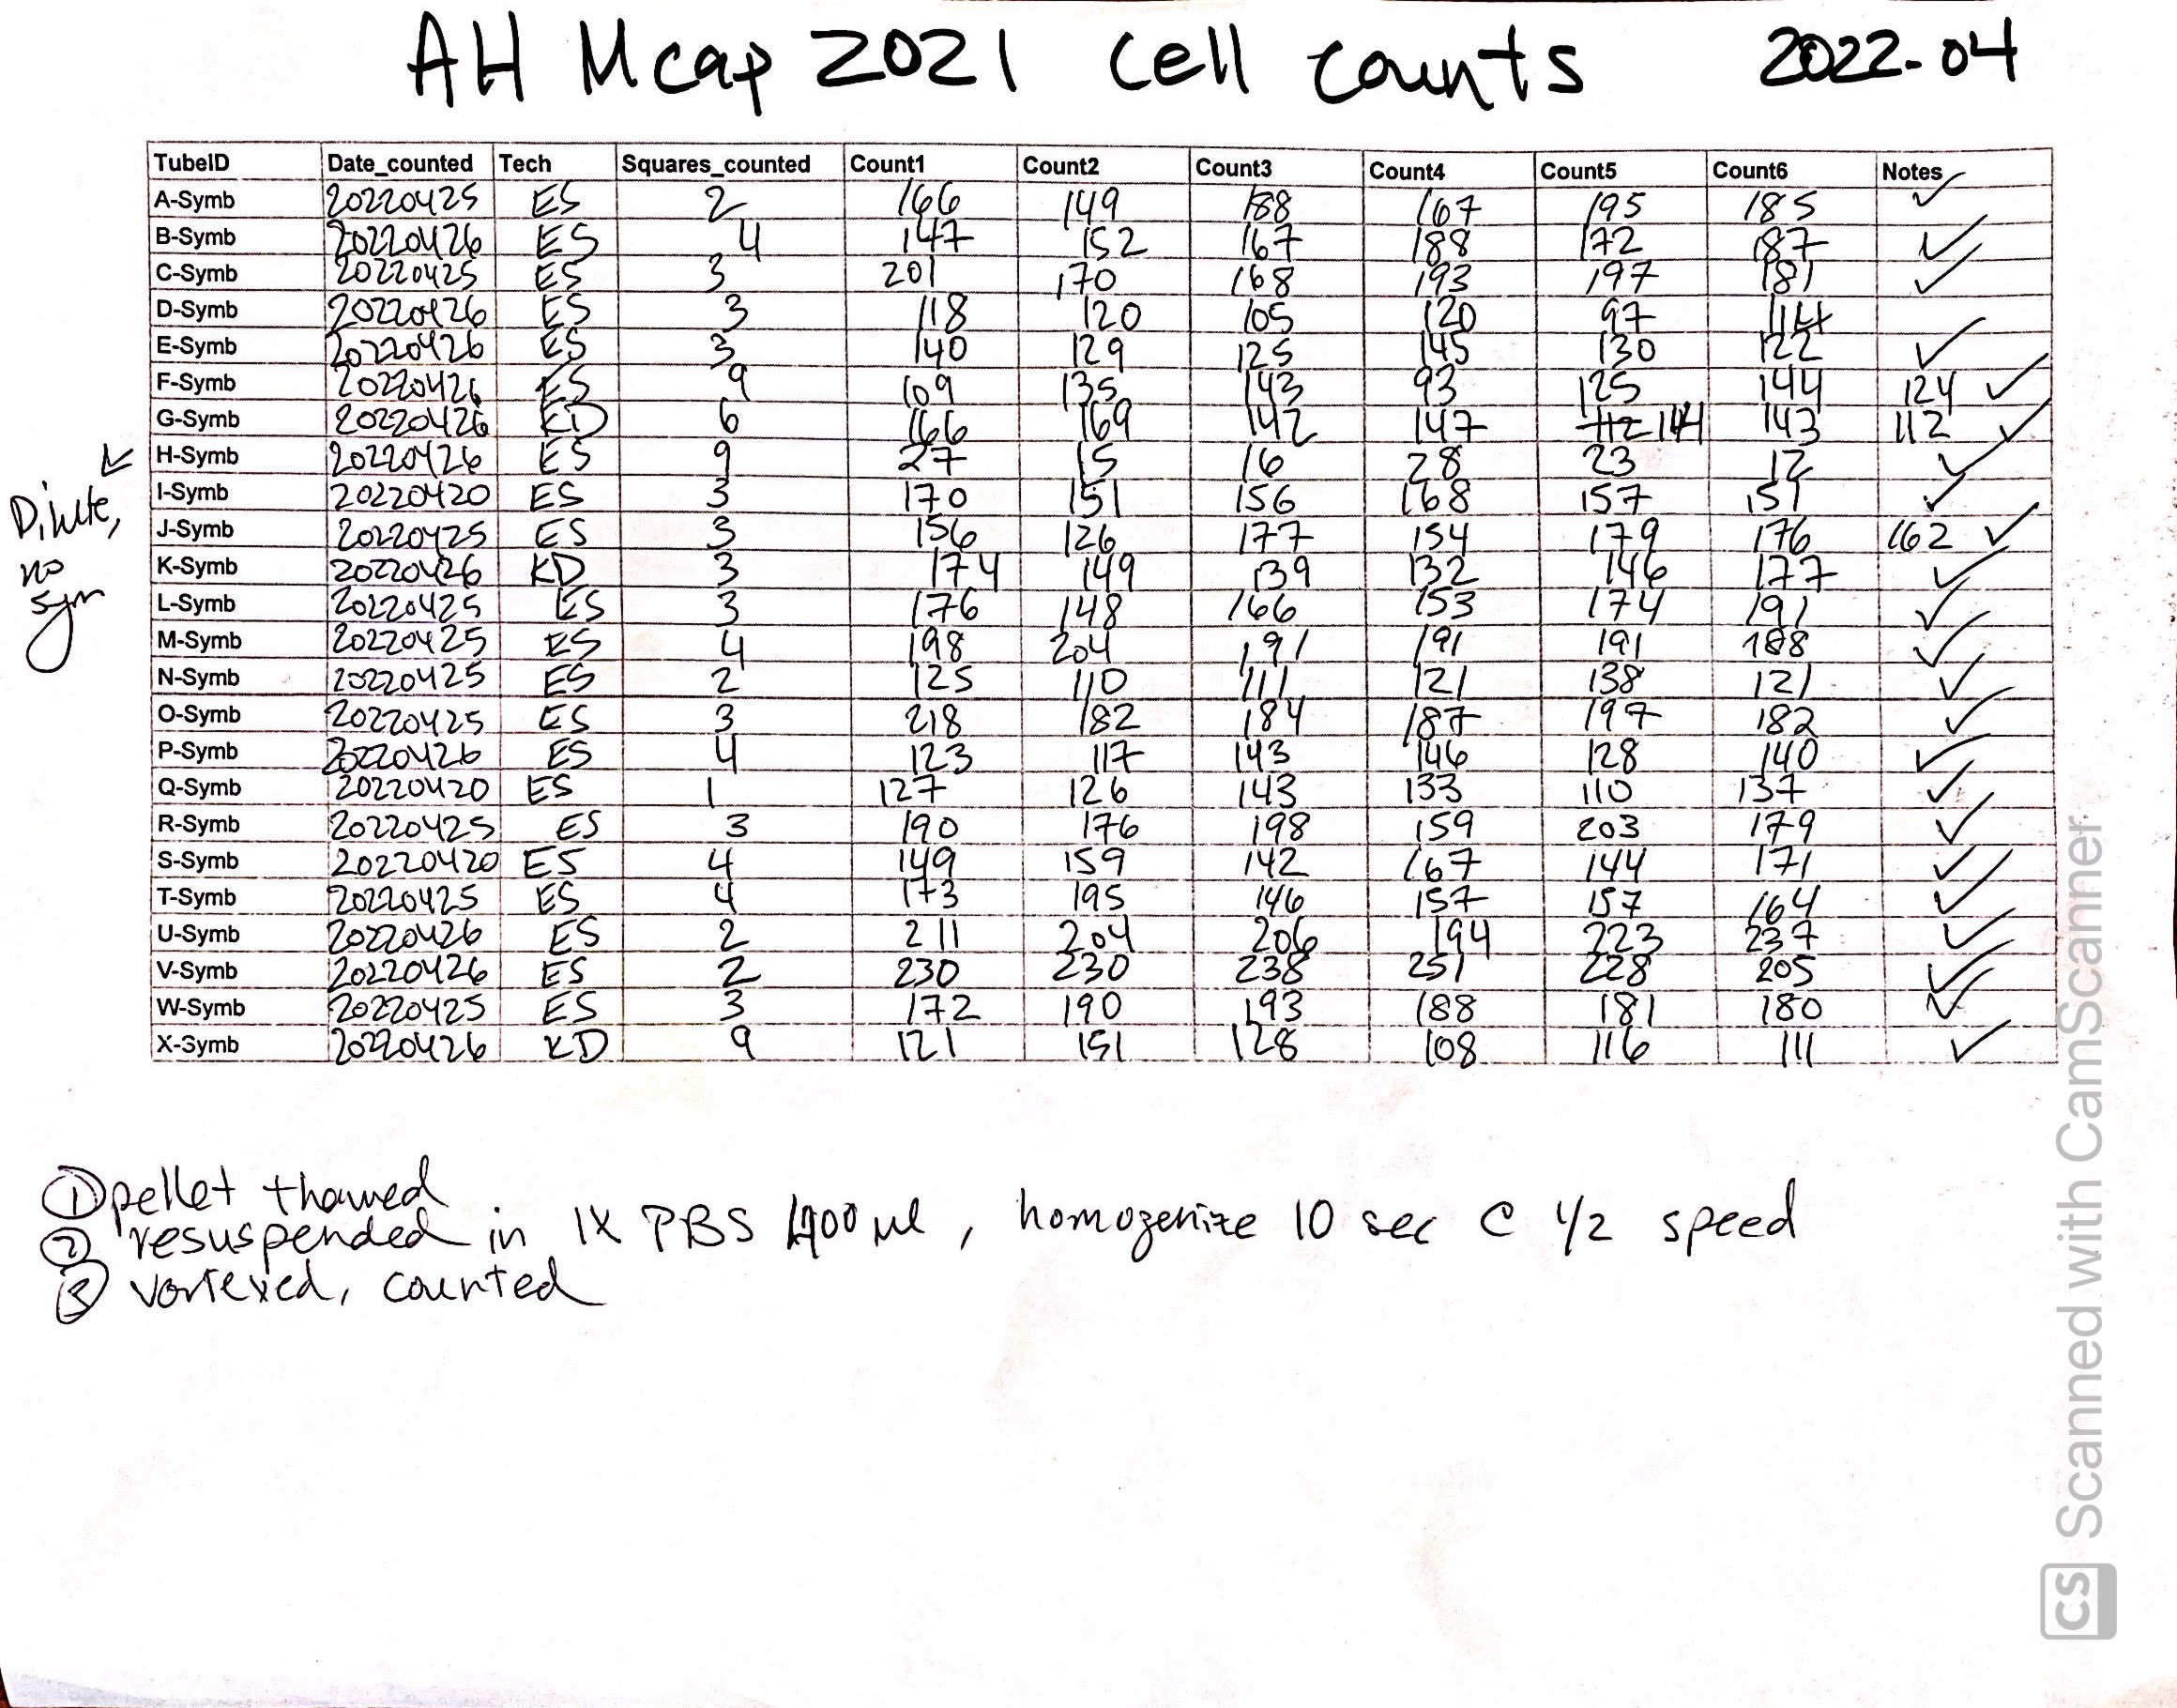 AH Mcap 2021 cell counts 2022-04
TubeID Date_counted Tech Squares_counted Count1 Count2 Count3 Count4 Count5 Count6 Notes
A-Symb 20220425 ES 2 166 149 188 167 195 185 ✓
B-Symb 20220426 ES 4 147 152 167 188 172 187 ✓
C-Symb 20220425 ES 3 201 170 168 193 197 181 ✓
D-Symb 20220426 ES 3 118 120 105 120 97 114
E-Symb 20220426 ES 3 140 129 125 145 130 122 ✓
F-Symb 20220426 ES 9 109 135 143 93 125 144 124 ✓
G-Symb 20220426 KD 6 166 169 142 147 112 144 143 112 ✓
H-Symb 20220426 ES 9 27 15 16 28 23 12 ✓
I-Symb 20220420 ES 3 170 151 156 168 157 151 ✓
J-Symb 20220425 ES 3 156 126 177 154 179 176 162 ✓
K-Symb 20220426 KD 3 174 149 139 132 146 177 ✓
L-Symb 20220425 ES 3 176 148 166 153 174 191 ✓
M-Symb 20220425 ES 4 198 204 191 191 191 188 ✓
N-Symb 20220425 ES 2 125 110 111 121 138 121 ✓
O-Symb 20220425 ES 3 218 182 184 187 197 182 ✓
P-Symb 20220426 ES 4 123 117 143 146 128 140 ✓
Q-Symb 20220420 ES 1 127 126 143 133 110 137 ✓
R-Symb 20220425 ES 3 190 176 198 159 203 179 ✓
S-Symb 20220420 ES 4 149 159 142 167 144 171 ✓
T-Symb 20220425 ES 4 173 195 146 157 157 164 ✓
U-Symb 20220426 ES 2 211 204 206 194 223 237 ✓
V-Symb 20220426 ES 2 230 230 238 251 228 205 ✓
W-Symb 20220425 ES 3 172 190 193 188 181 180 ✓
X-Symb 20220426 KD 9 121 151 128 108 116 111 ✓
Dilute,
no
sym
① pellet thawed
② resuspended in 1X PBS 400 µl, homogenize 10 sec @ 1/2 speed
③ vortexed, counted
CS Scanned with CamScanner